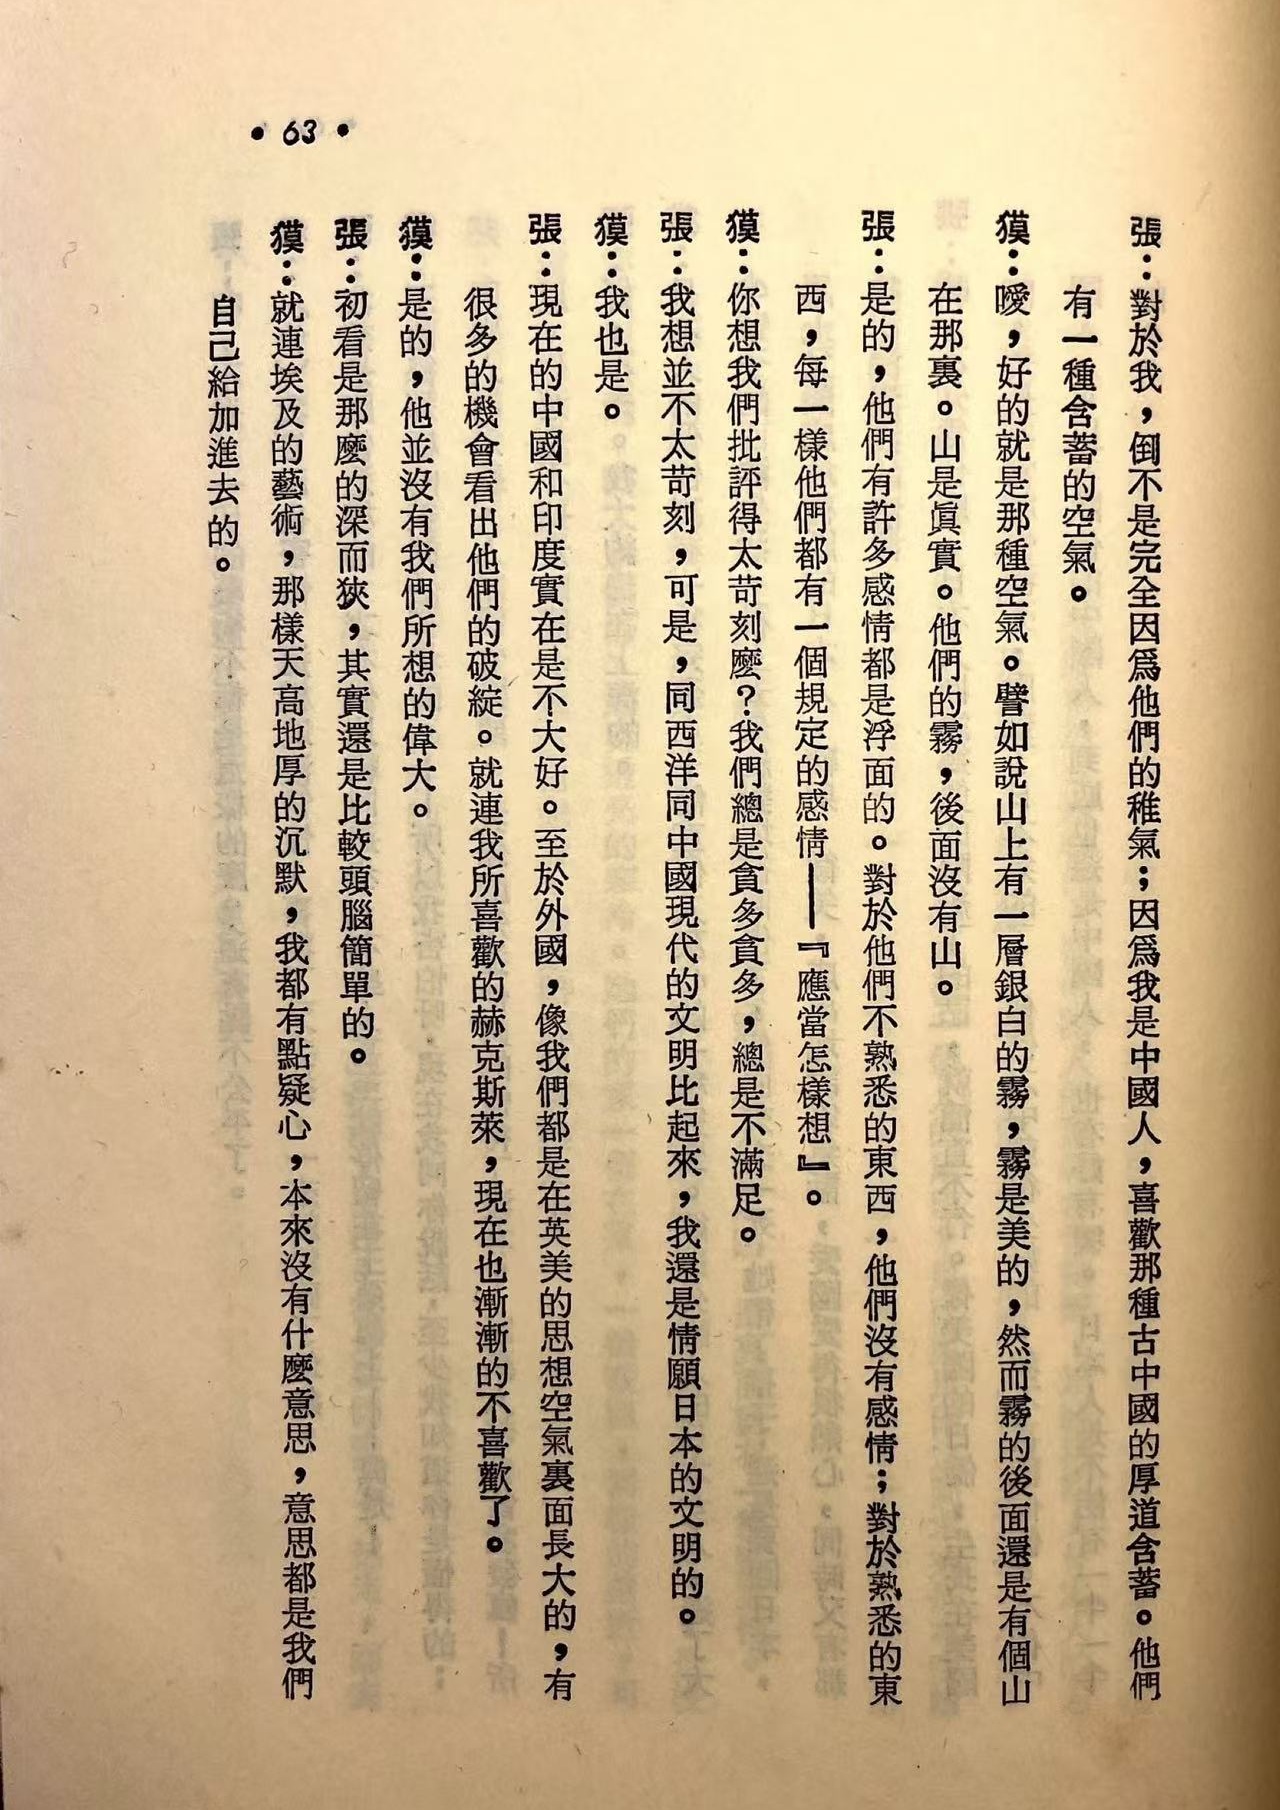 張：對於我，倒不是完全因爲他們的稚氣；因爲我是中國人，喜歡那種古中國的厚道含蓄。他們
有一種含蓄的空氣。
獏：噯，好的就是那種空氣。譬如說山上有一層銀白的霧，霧是美的，然而霧的後面還是有個山
在那裏。山是眞實。他們的霧，後面沒有山。
張：是的，他們有許多感情都是浮面的。對於他們不熟悉的東西，他們沒有感情；對於熟悉的東
西，每一樣他們都有一個規定的感情——『應當怎樣想』。
獏：你想我們批評得太苛刻麼？我們總是貪多貪多，總是不滿足。
張：我想並不太苛刻，可是，同西洋同中國現代的文明比起來，我還是情願日本的文明的。
獏：我也是。
張：現在的中國和印度實在是不大好。至於外國，像我們都是在英美的思想空氣裏面長大的，有
很多的機會看出他們的破綻。就連我所喜歡的赫克斯萊，現在也漸漸的不喜歡了。
獏：是的，他並沒有我們所想的偉大。
張：初看是那麼的深而狹，其實還是比較頭腦簡單的。
獏：就連埃及的藝術，那樣天高地厚的沉默，我都有點疑心，本來沒有什麼意思，意思都是我們
自己給加進去的。
• 63 •